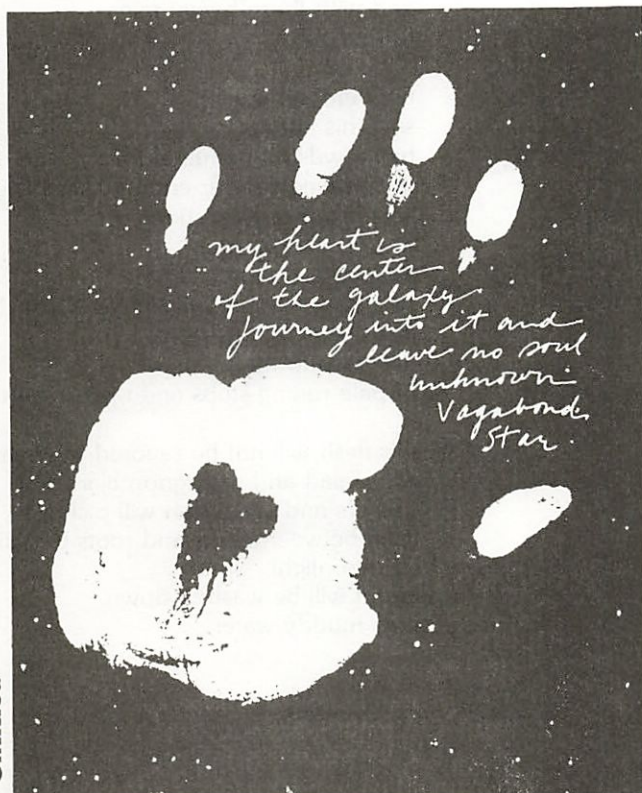 my heart is
the center
of the galaxy
journey into it and
leave no soul
unknown
Vagabond
Star